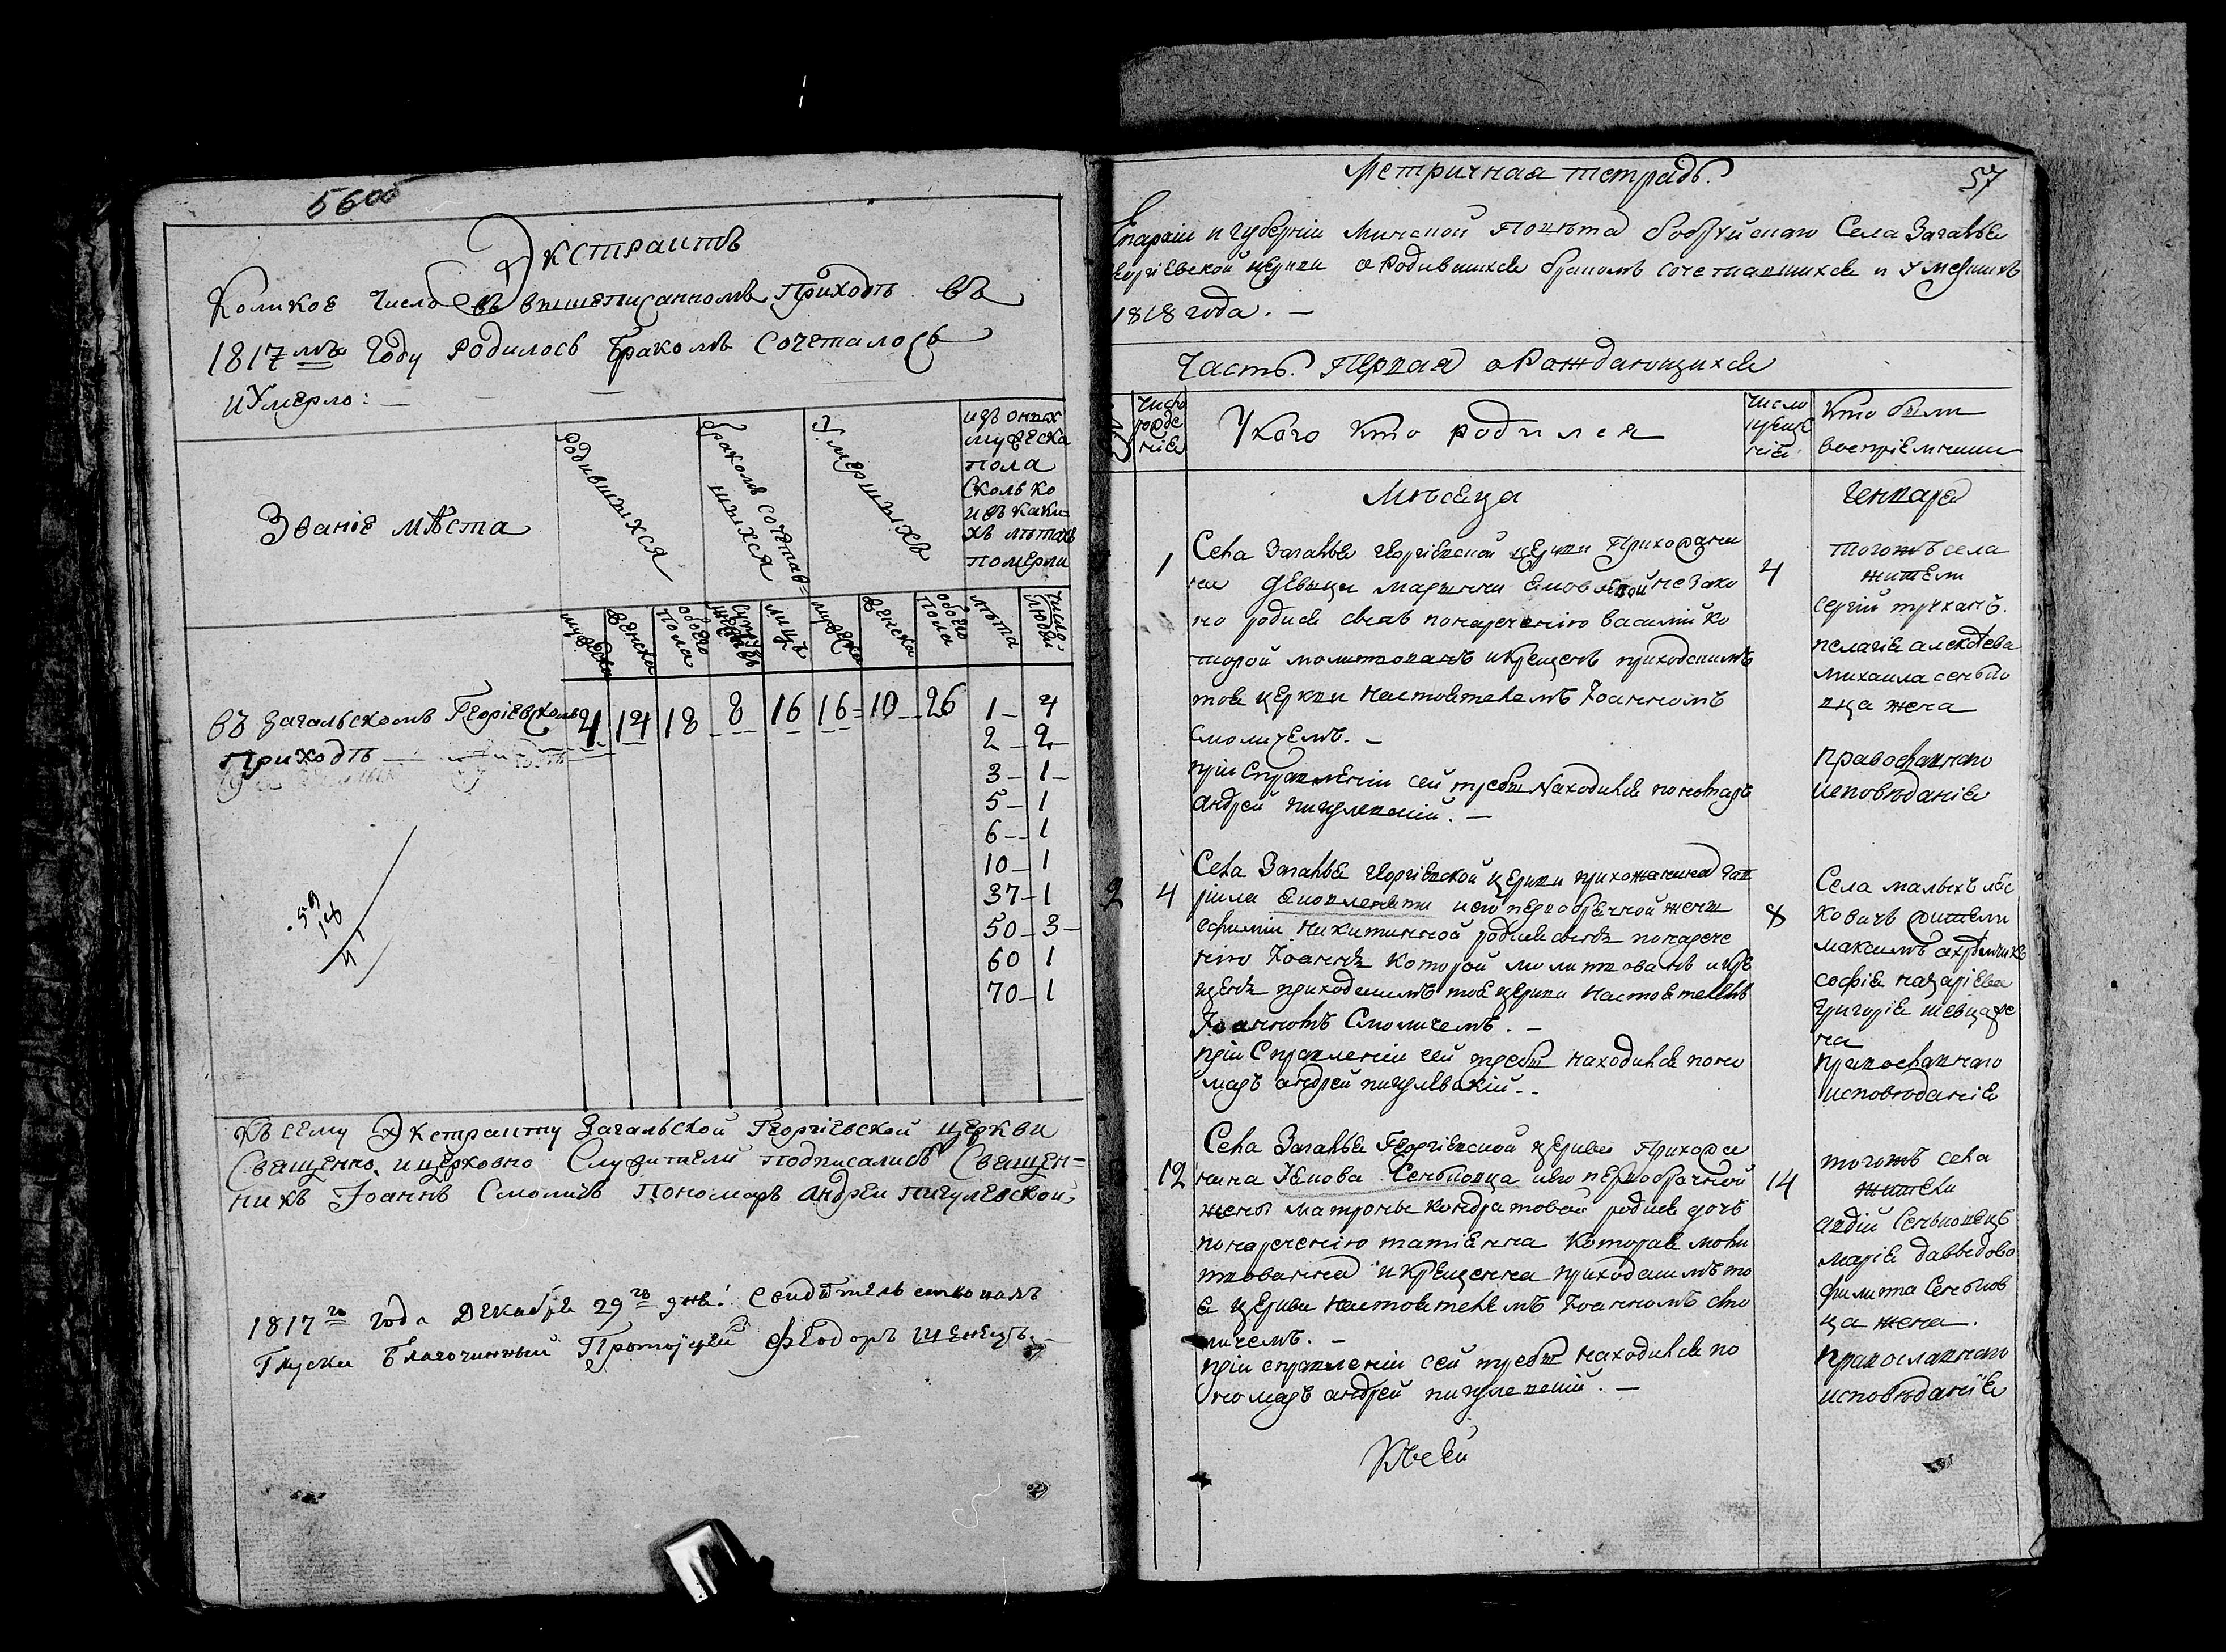 5600
Экстрактъ
Коликое число въ вышеписанномъ Приходѣ въ
1817мъ году родилось бракомъ сочеталось
и Умерло: —
Званіе мѣста
родившихся
бракомъ сочетав=
шихся
Умершихъ
изъ оныхъ
мужеска
пола
сколько
и въ каки=
хъ лѣтахъ
померли
мужеска
женска
обоего
пола
лицъ
мужеска
женска
обоего
пола
лѣта
число
людей
Въ Загальскомъ Георгіевскомъ 4 14 18 8 16 16 10 26
приходѣ
1 — 4
2 — 2
3 — 1
5 — 1
6 — 1
10 — 1
37 — 1
50 — 3
60 1
70 — 1
Къ сему Экстракту Загальской Георгіевской церкви
Священно и церковно Служители подписались Священ=
никъ Іоаннъ Смоличъ Пономарь Андрей Пигулевской
1817го года Декабря 29го дня: свидѣтельствовалъ
Глуски Благочинный Протоіерей Феодоръ
Метричная тетрадь.
57
Епархіи и губерніи Минской Повѣта бобруйскаго Села Загалья
еоргіевской церкви о Родившихся бракомъ сочетавшихся и умершихъ
1818 года. —
Часть. Первая о Рождающихся
число
рожде
нія
У кого кто родился
число
креще
нія
Кто были
воспріемники
Мѣсяца
Генваря
1
Села Загалья георгіевской церкви Прихожан
ки девицы марыны незако
но родися сынъ понареченію василій ко
торой молитвованъ и крещенъ приходскимъ
тоя церкви настоятелемъ Іоанномъ
Смоличемъ. —
при Справленіи сей требы находился пономарь
андрей пигулевскій. —
4
тогожъ села
жители
сергій труханъ.
пелагія алексѣева
михаила сенько
вца жена
православнаго
исповѣданія
2
4
Села Загалья георгіевской церкви прихожанина гав
ріила и его первобрачной жены
ефиміи никитиной родися сынъ понарече
нію Іоаннъ которой молитвованъ и кре
щенъ приходскимъ тоя церкви настоятелемъ
Іоанномъ Смоличемъ. —
при Справленіи сей требы находился поно
марь андрей пигулевскій. —
8
Села малыхъ
ковичъ жители
максимъ
софія назаріева
григорія шевца же
на
православнаго
исповѣданія
12
Села Загалья Георгіевской церкви Прихожа
нина Якова Сеньковца и его первобрачной
жены матроны кондратовой родися дочь
понареченію татіанна которая моли
твованна и крещенна приходскимъ то
я церкви настоятелемъ Іоанномъ смо
личемъ. —
при справленіи сей требы находился по
номарь андрей пигулевскій. —
14
тогожъ села
жители
авдій Сеньковецъ
марія давыдова
филипа Сеньков
ца жена.
православнаго
исповѣданія
Къ сей